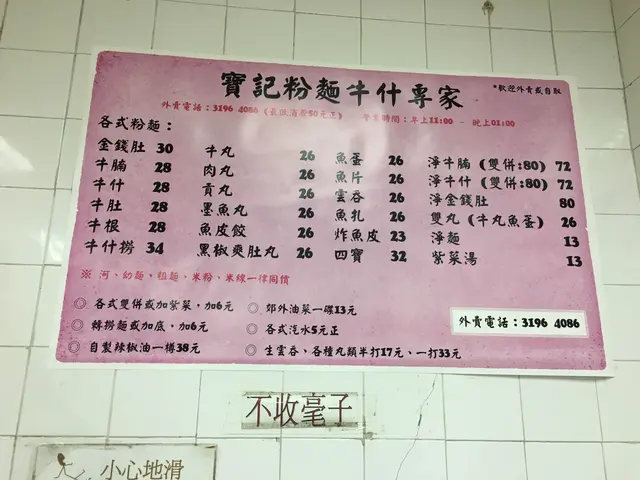 寶記粉麵牛什專家
*歡迎外賣或自取
外賣電話：3196 4086（最低消費50元正） 營業時間：早上11:00 - 晚上01:00
各式粉麵：
金錢肚 30
牛腩 28
牛什 28
牛肚 28
牛根 28
牛什撈 34
牛丸 26
肉丸 26
貢丸 26
墨魚丸 26
魚皮餃 26
黑椒爽肚丸 26
魚蛋 26
魚片 26
雲吞 26
魚乳 26
炸魚皮 23
四寶 32
淨牛腩（雙併:80） 72
淨牛什（雙併:80） 72
淨金錢肚 80
雙丸（牛丸魚蛋） 26
淨麵 13
紫菜湯 13
※ 河、幼麵、粗麵、米粉、米線一律同價
◎ 各式雙併或加紫菜，加6元
◎ 轉撈麵或加底，加6元
◎ 自製辣椒油一樽38元
◎ 郊外油菜一碟13元
◎ 各式汽水5元正
◎ 生雲吞、各種丸類半打17元、一打33元
外賣電話：3196 4086
不收毫子
小心地滑